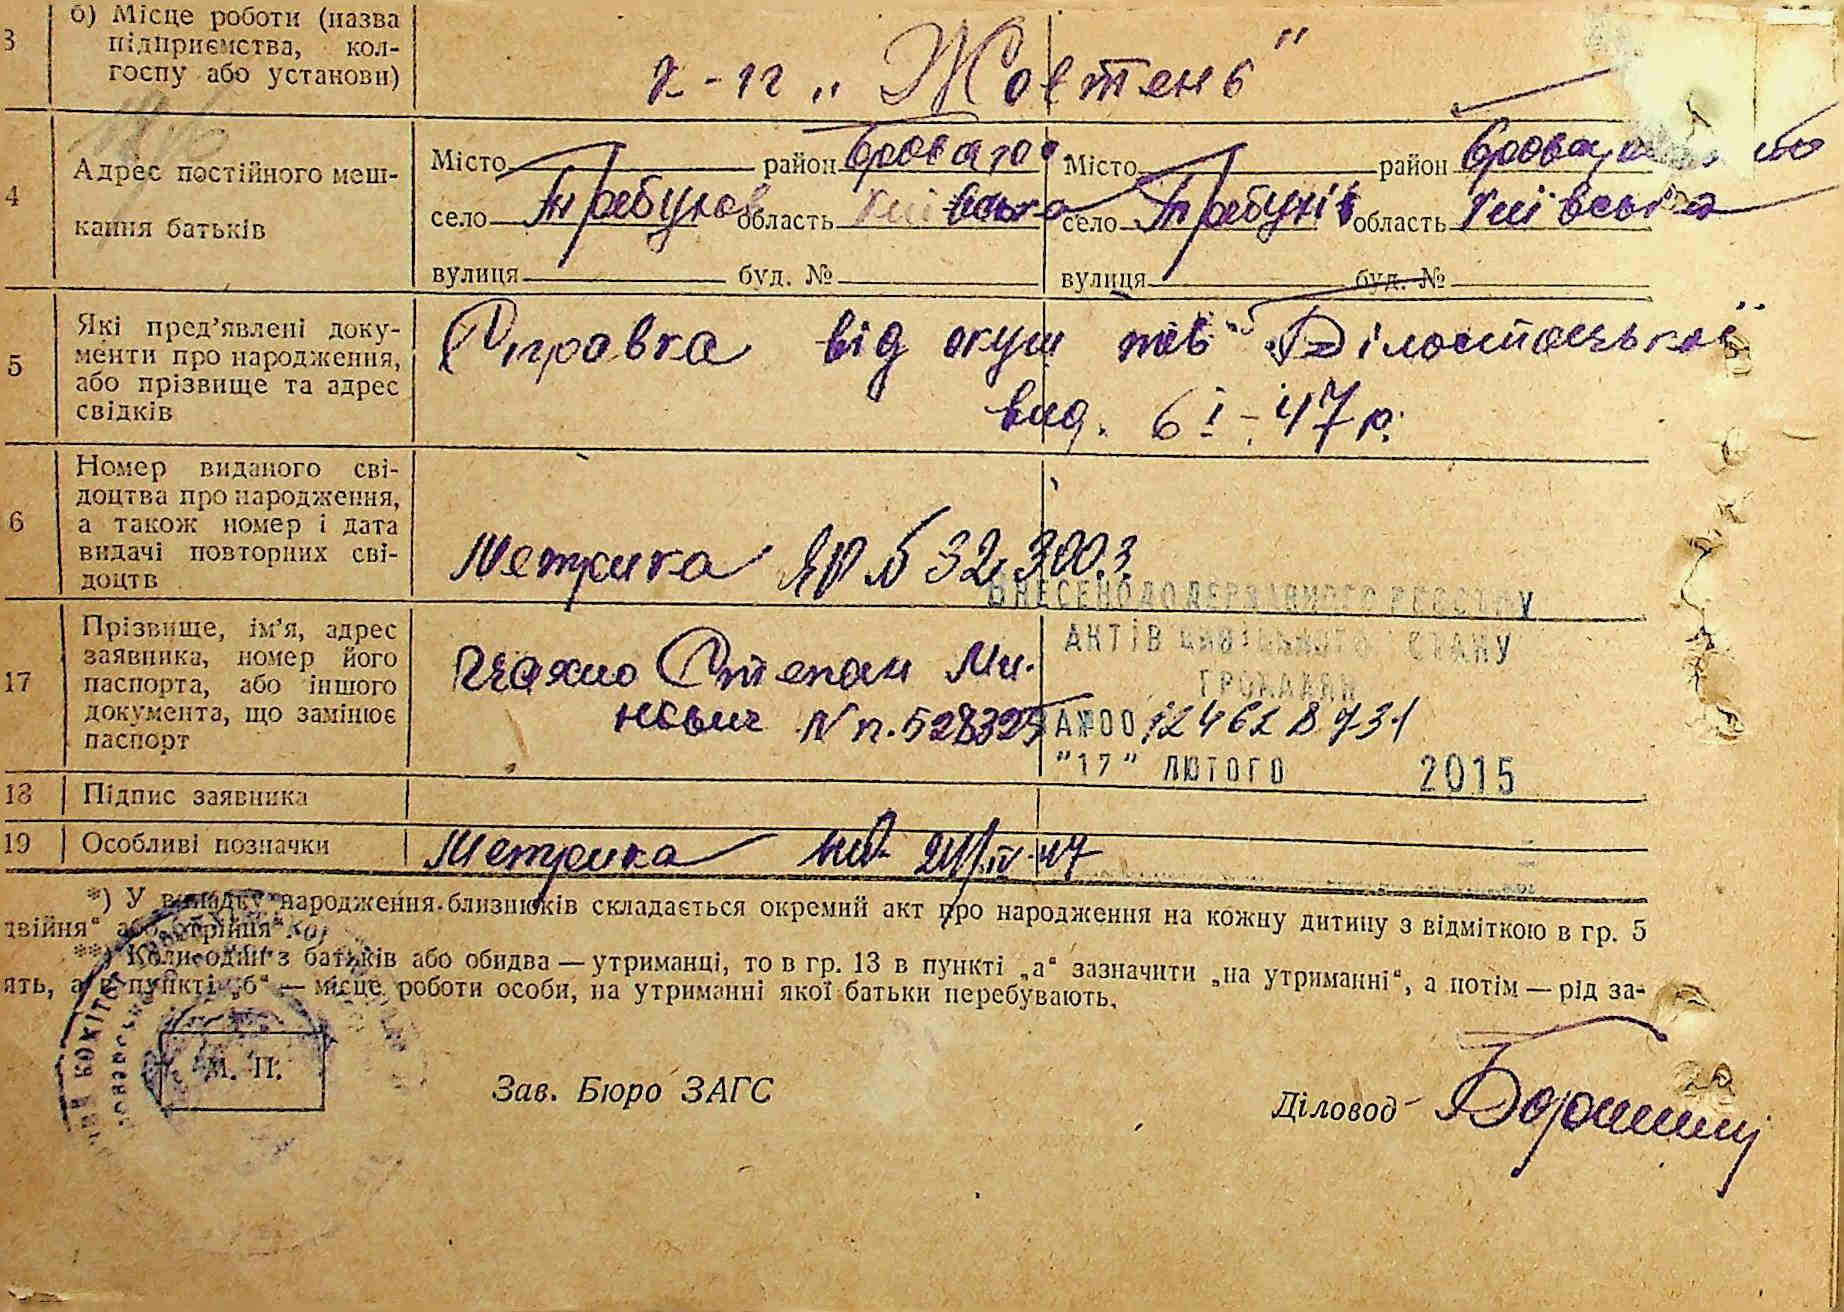 3 б) Місце роботи (назва
підприємства, кол-
госпу або установи)
к-п „Жовтень"
4 Адрес постійного меш-
кання батьків
Місто район Місто район
село Требухов область Київська село Требухів область Київська
вулиця буд. № вулиця буд. №
5 Які пред'явлені доку-
менти про народження,
або прізвище та адрес
свідків
Справка від акуш
вид. 6 І-47 р.
6 Номер виданого сві-
доцтва про народження,
а також номер і дата
видачі повторних сві-
доцтв
Метрика
ВНЕСЕНО ДО ДЕРЖАВНОГО РЕЄСТРУ
АКТІВ ЦИВІЛЬНОГО СТАНУ
ГРОМАДЯН
А№00 124628931
"17" ЛЮТОГО 2015
17 Прізвище, ім'я, адрес
заявника, номер його
паспорта, або іншого
документа, що замінює
паспорт
Степан Ми-
нович N п. 528325
18 Підпис заявника
19 Особливі позначки
Метрика
*) У випадку народження близнюків складається окремий акт про народження на кожну дитину з відміткою в гр. 5
двійня" або „трійня".
**) Коли один з батьків або обидва — утриманці, то в гр. 13 в пункті „а" зазначити „на утриманні", а потім — рід за-
ять, а в пункті „б" — місце роботи особи, на утриманні якої батьки перебувають.
М. П.
Зав. Бюро ЗАГС
Діловод